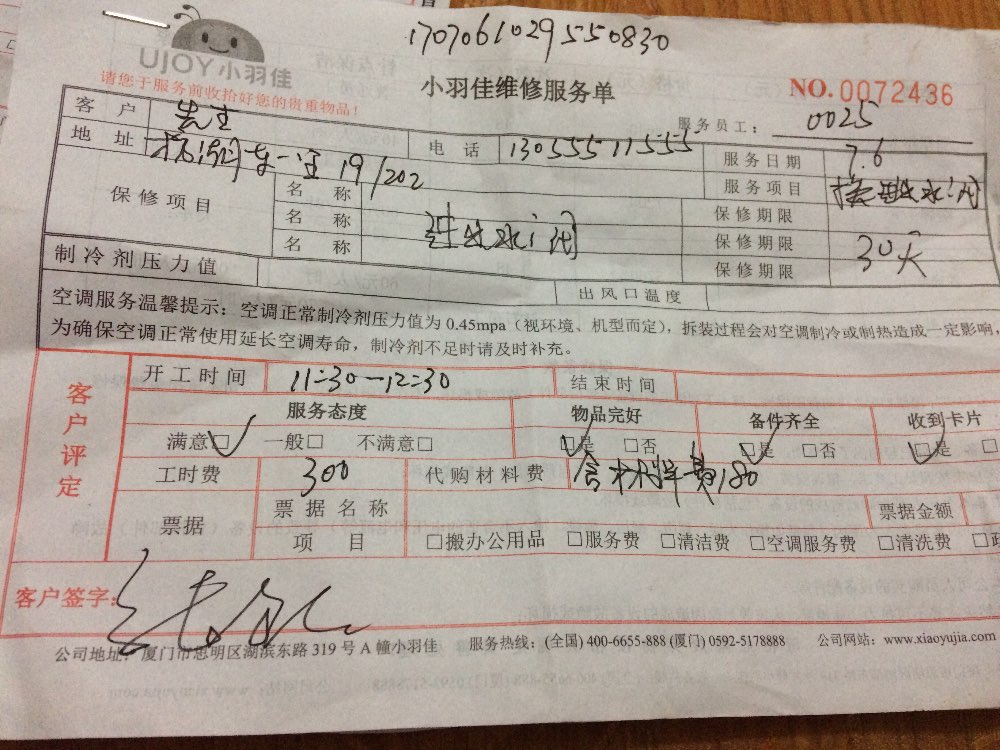 1707061029550830
UJOY小羽佳
请您于服务前收拾好您的贵重物品！
小羽佳维修服务单
NO.0072436
服务员工： 0025
客户 先生 电话 13055511555 服务日期 7.6
地址 一里19/202 服务项目 换进水阀
保修项目 名称 保修期限
名称 进水阀 保修期限 30天
名称 保修期限
制冷剂压力值 出风口温度
空调服务温馨提示：空调正常制冷剂压力值为 0.45mpa（视环境、机型而定），拆装过程会对空调制冷或制热造成一定影响，
为确保空调正常使用延长空调寿命，制冷剂不足时请及时补充。
客户评定
开工时间 11:30-12:30 结束时间
服务态度 物品完好 备件齐全 收到卡片
满意□ 一般□ 不满意□ □是 □否 □是 □否 □是 □
工时费 300 代购材料费 含材料费180
票据 票据名称 票据金额
项目 □搬办公用品 □服务费 □清洁费 □空调服务费 □清洗费
客户签字：
公司地址：厦门市思明区湖滨东路 319 号 A 幢小羽佳 服务热线：(全国) 400-6655-888 (厦门) 0592-5178888 公司网站：www.xiaoyujia.com